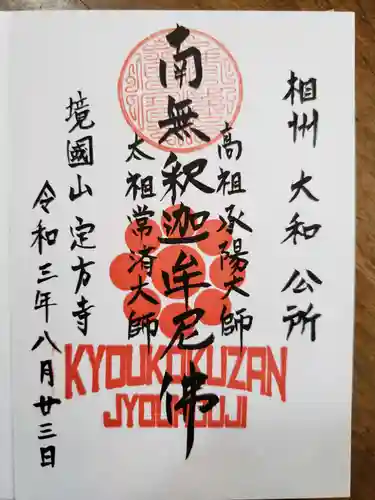 相州 大和 公所
高祖承陽大師
南無釈迦牟尼佛
太祖常済大師
境國山 定方寺
令和三年八月廿三日
KYOUKOKUZAN
JYOUHOUJI